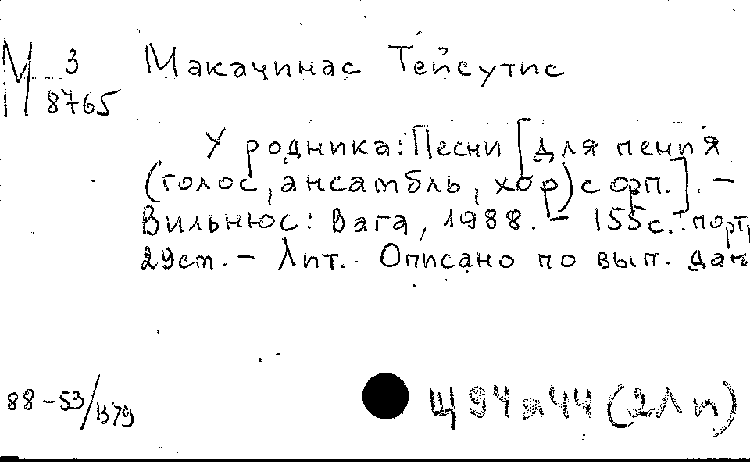 М 3
8765
Макачинас Тейсутис
У родника: Песни [для пения
(голос, ансамбль, хор) с орп.]. —
Вильнюс: Вага, 1988. — 155с.: порт,
29см. — Лит. Описано по вып. дан
88-53/1379
Щ94я44(2Лп)